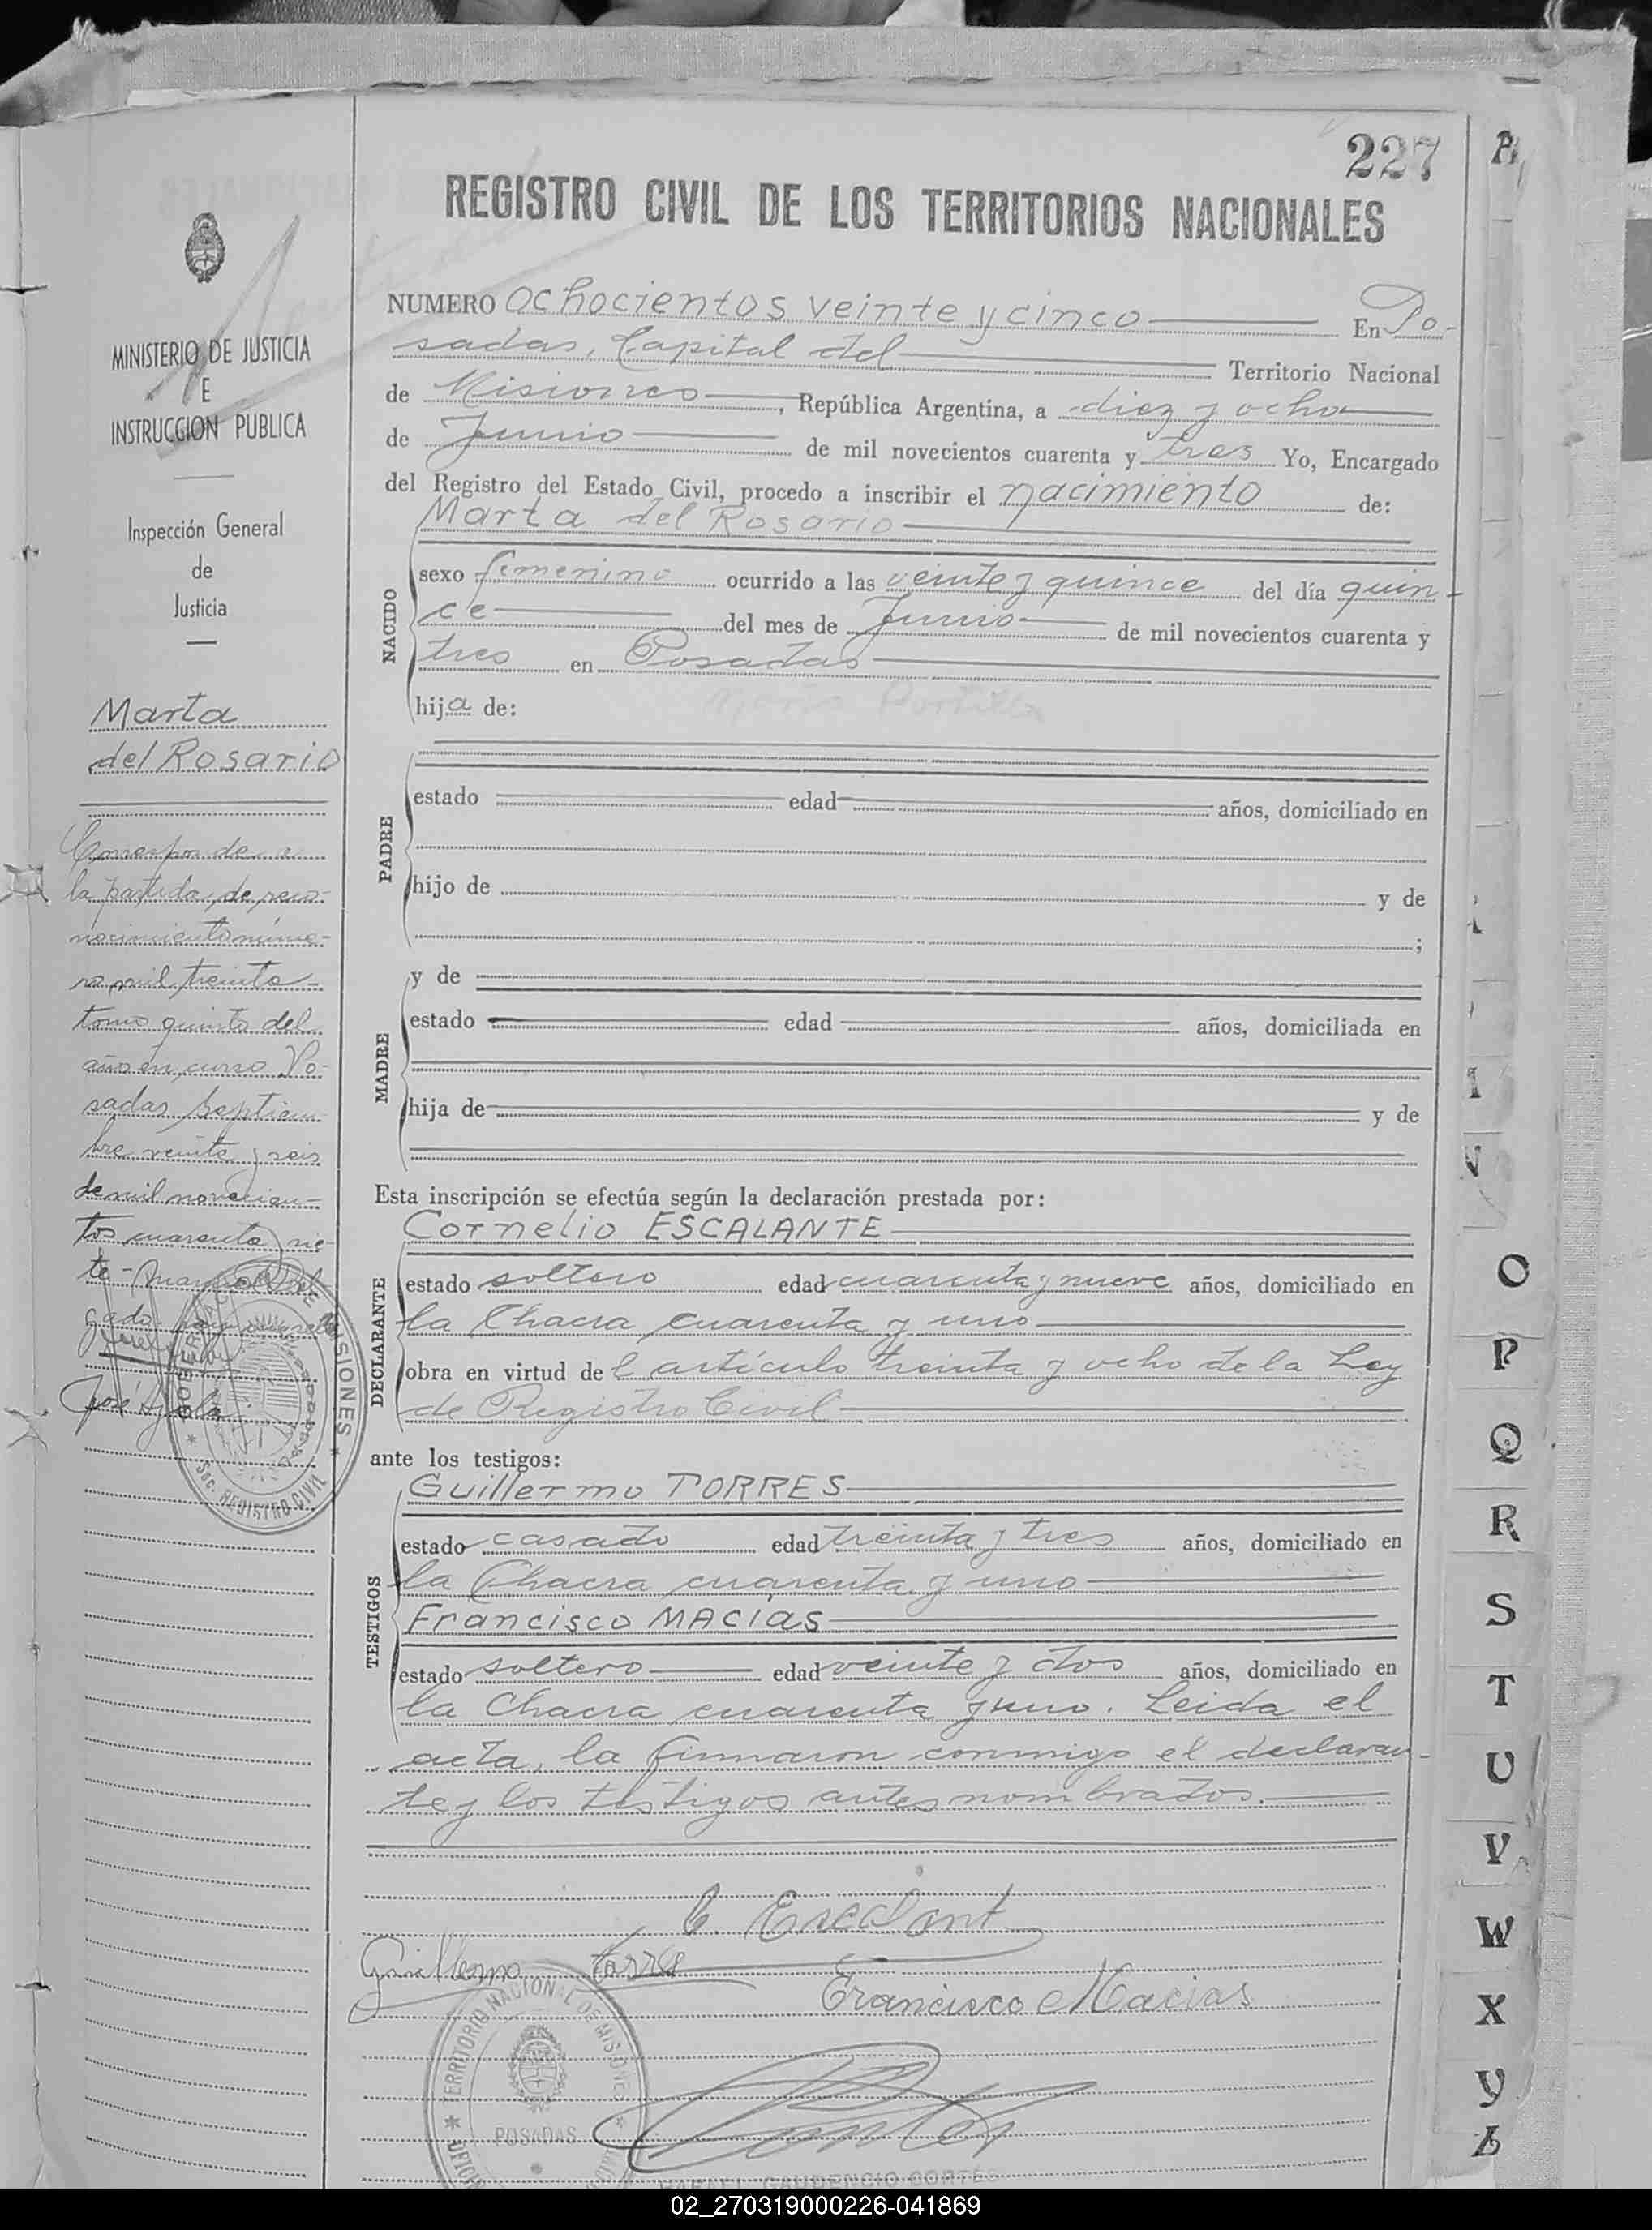 227
REGISTRO CIVIL DE LOS TERRITORIOS NACIONALES
NUMERO ochocientos veinte y cinco En Po-
sadas, Capital del Territorio Nacional
de Misiones, República Argentina, a diez y ocho
de Junio de mil novecientos cuarenta y tres Yo, Encargado
del Registro del Estado Civil, procedo a inscribir el nacimiento de:
Marta del Rosario
NACIDO
sexo femenino ocurrido a las veinte y quince del día quin-
ce del mes de Junio de mil novecientos cuarenta y
tres en Posadas
hija de:
PADRE
estado edad años, domiciliado en
hijo de y de
;
MADRE
y de
estado edad años, domiciliada en
hija de y de
Esta inscripción se efectúa según la declaración prestada por:
Cornelio ESCALANTE
DECLARANTE
estado soltero edad cuarenta y nueve años, domiciliado en
la Chacra cuarenta y uno
obra en virtud del artículo treinta y ocho de la Ley
de Registro Civil
ante los testigos:
Guillermo TORRES
TESTIGOS
estado casado edad treinta y tres años, domiciliado en
la Chacra cuarenta y uno
Francisco MACIAS
estado soltero edad veinte y dos años, domiciliado en
la Chacra cuarenta y uno. Leida el
acta, la firmaron conmigo el declaran-
te y los testigos antes nombrados.
C. Escalant
Guillermo Torres
Francisco Macias
TERRITORIO NACIONAL DE MISIONES
POSADAS
RAFAEL GAUDENCIO CORTES
MINISTERIO DE JUSTICIA
E
INSTRUCCION PUBLICA
Inspección General
de
Justicia
Marta
del Rosario
Corresponde a
la partida de reco-
nocimiento núme-
ro mil treinta
tomo quinto del
año en curso Po-
sadas Septiem-
bre veinte y seis
de mil novecien-
tos cuarenta y sie-
te
José Ayala
GOBERNACION DE MISIONES
Sec. REGISTRO CIVIL
O
P
Q
R
S
T
U
V
W
X
Y
Z
02_270319000226-041869